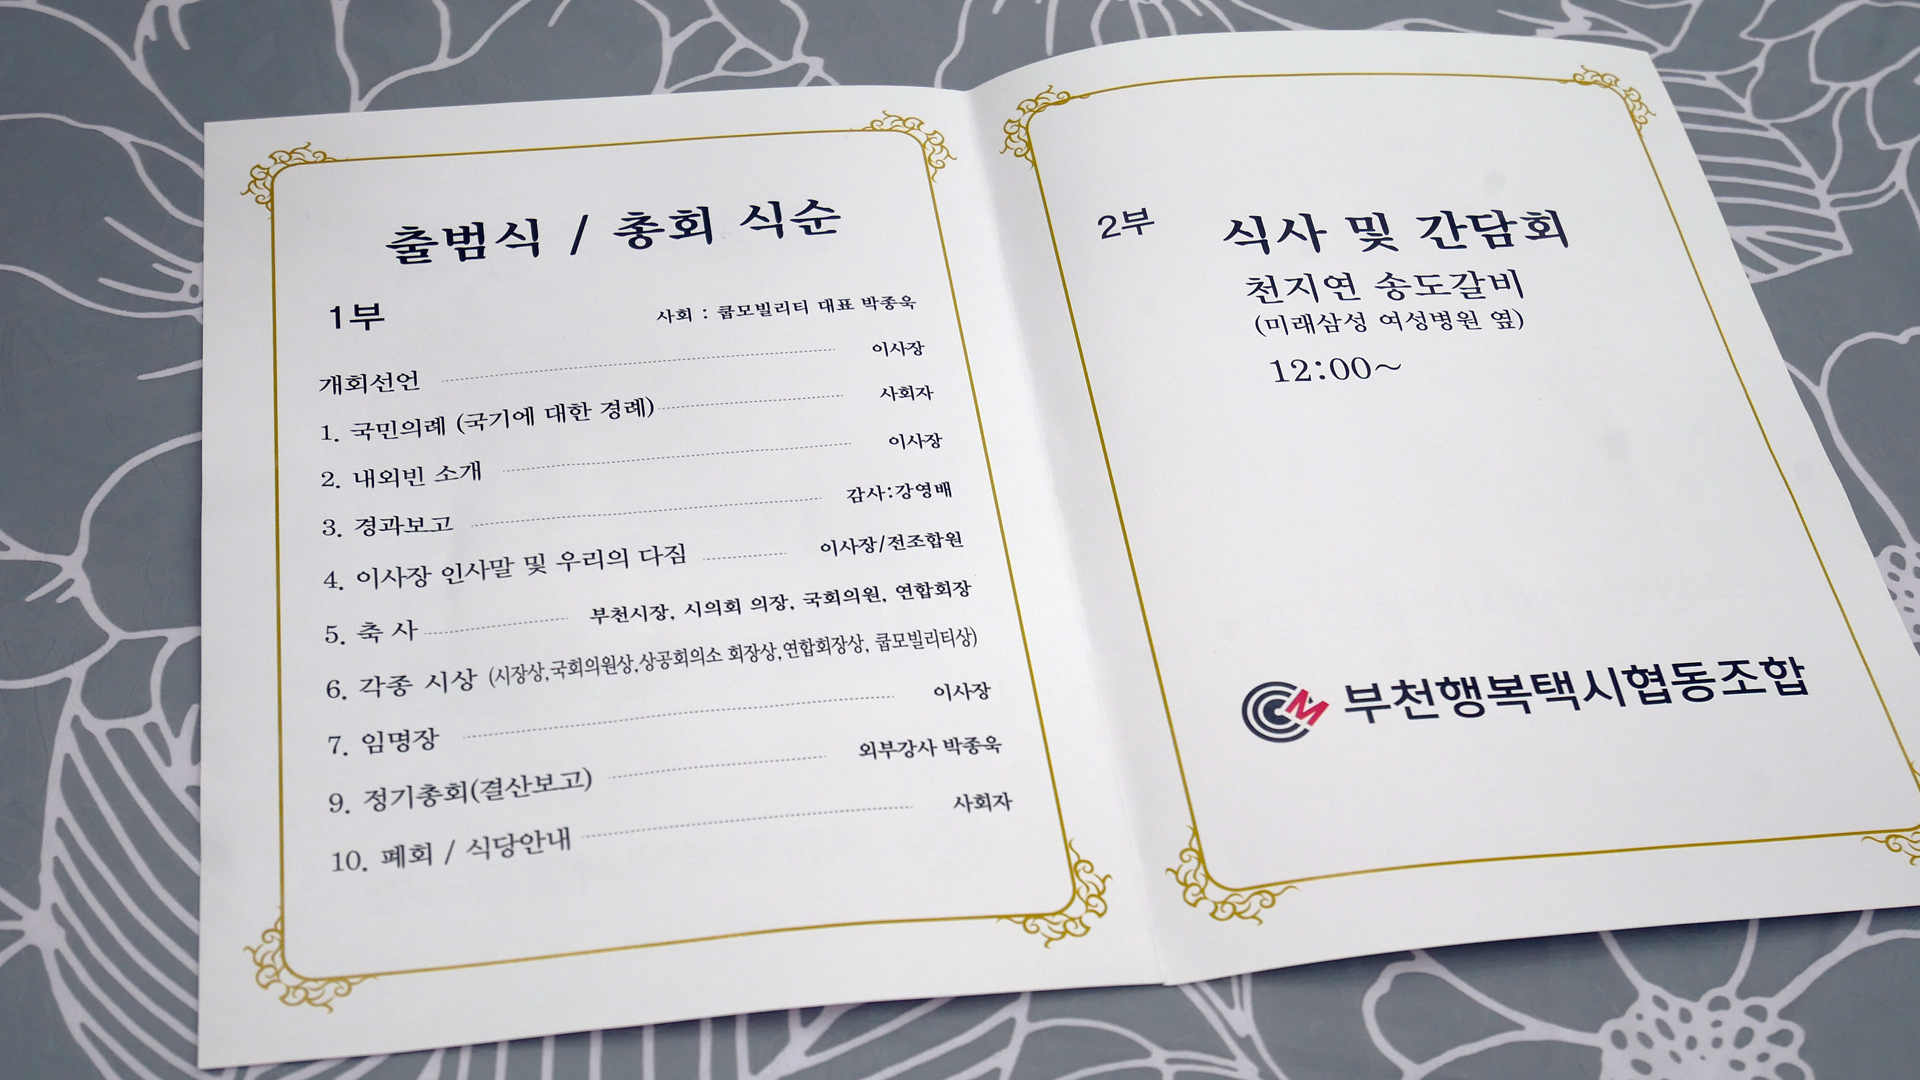 출범식 / 총회 식순
1부
사회 : 쿱모빌리티 대표 박종욱
개회선언 이사장
1. 국민의례 (국기에 대한 경례) 사회자
2. 내외빈 소개 이사장
3. 경과보고 감사:강영배
4. 이사장 인사말 및 우리의 다짐 이사장/전조합원
5. 축 사 부천시장, 시의회 의장, 국회의원, 연합회장
6. 각종 시상 (시장상,국회의원상,상공회의소 회장상,연합회장상, 쿱모빌리티상)
7. 임명장 이사장
9. 정기총회(결산보고) 외부강사 박종욱
10. 폐회 / 식당안내 사회자
2부 식사 및 간담회
천지연 송도갈비
(미래삼성 여성병원 옆)
12:00~
CM 부천행복택시협동조합